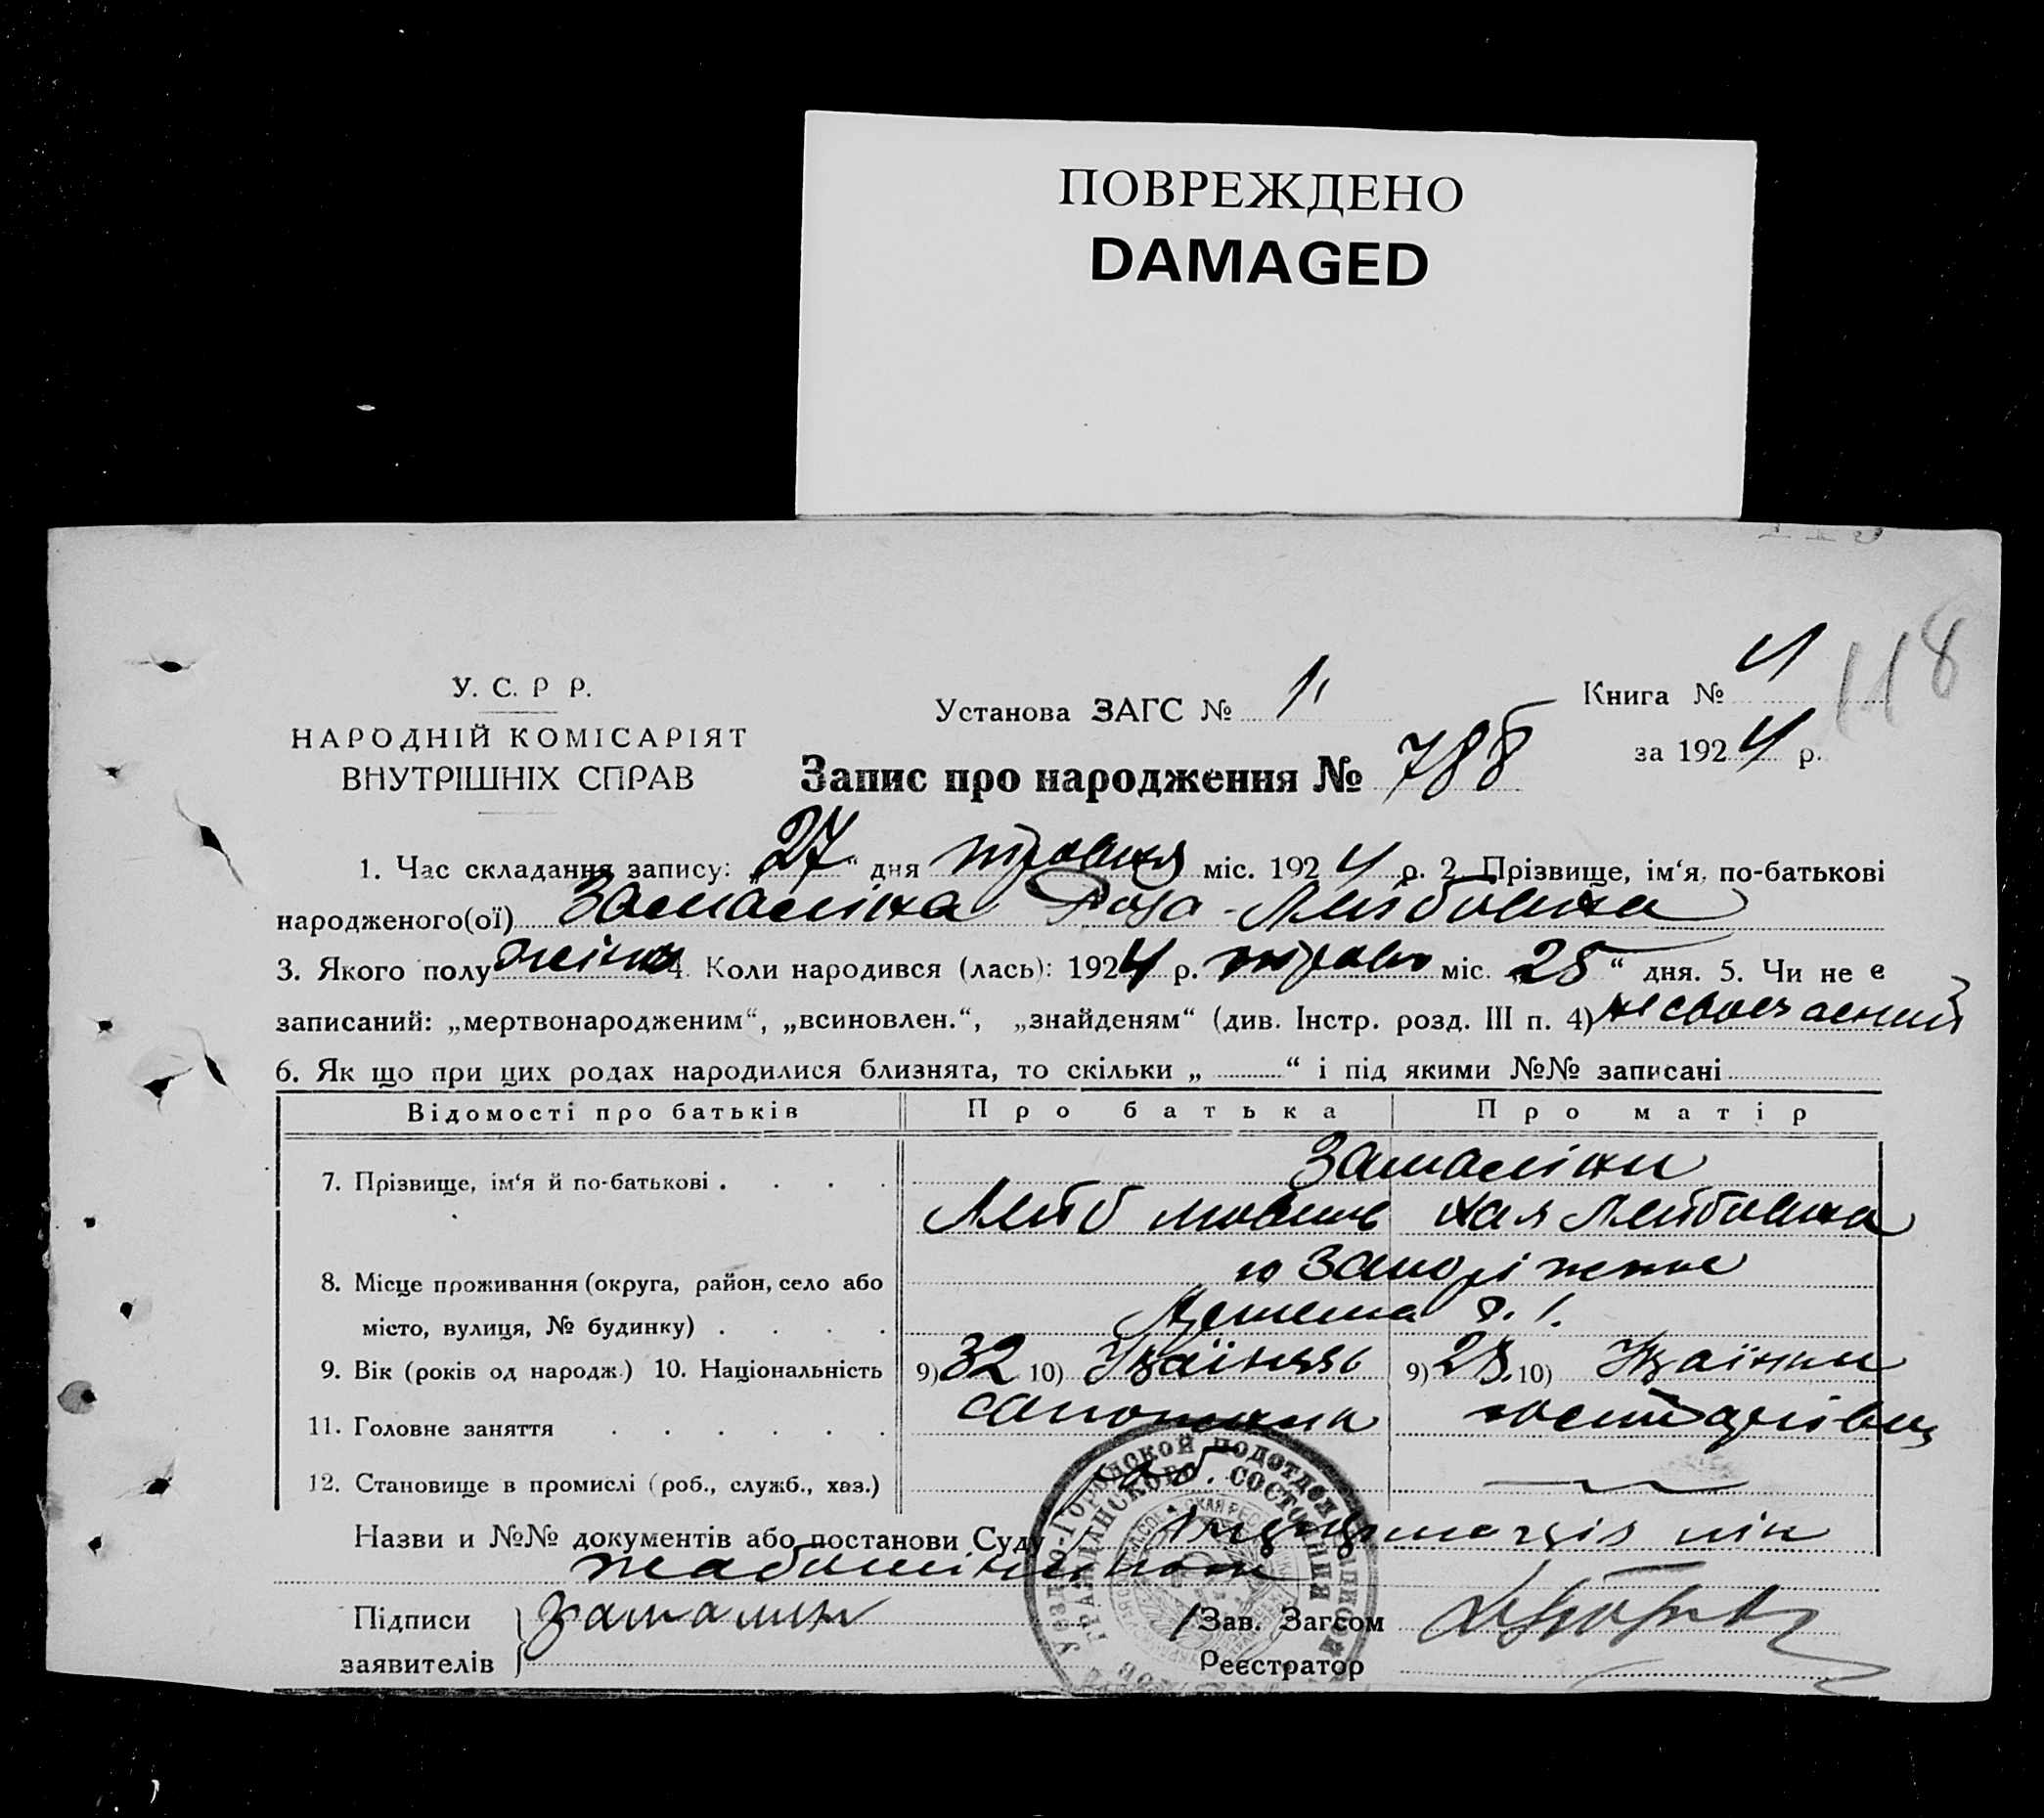 ПОВРЕЖДЕНО
DAMAGED
118
У. С. Р Р.
НАРОДНІЙ КОМІСАРІЯТ
ВНУТРІШНІХ СПРАВ
Установа ЗАГС № 1.
Книга № 4
за 1924 р.
Запис про народження № 788
1. Час складання запису: „27“ дня травня міс. 1924 р. 2. Прізвище, ім‘я, по-батькові
народженого(ої) Роза Лейбовна
3. Якого полу жіноч 4. Коли народився (лась): 1924 р. травня міс. „25“ дня. 5. Чи не є
записаний: „мертвонародженим“, „всиновлен.“, „знайденям“ (див. Інстр. розд. III п. 4) несвоечасний
6. Як що при цих родах народилися близнята, то скільки „ “ і під якими №№ записані
Відомості про батьків Про батька Про матір
7. Прізвище, ім‘я й по-батькові . . . .
Лейб Хая Лейбовна
8. Місце проживання (округа, район, село або м Запоріжжє
місто, вулиця, № будинку) . . . . 8. 1.
9. Вік (років од народж.) 10. Національність 9) 32 10) Українець 9) 28. 10) Українки
11. Головне заняття . . . . . .
12. Становище в промислі (роб., служб., хаз.) роб.
Назви и №№ документів або постанови Суду
Підписи
заявителів
Зав. Загсом
Реєстратор